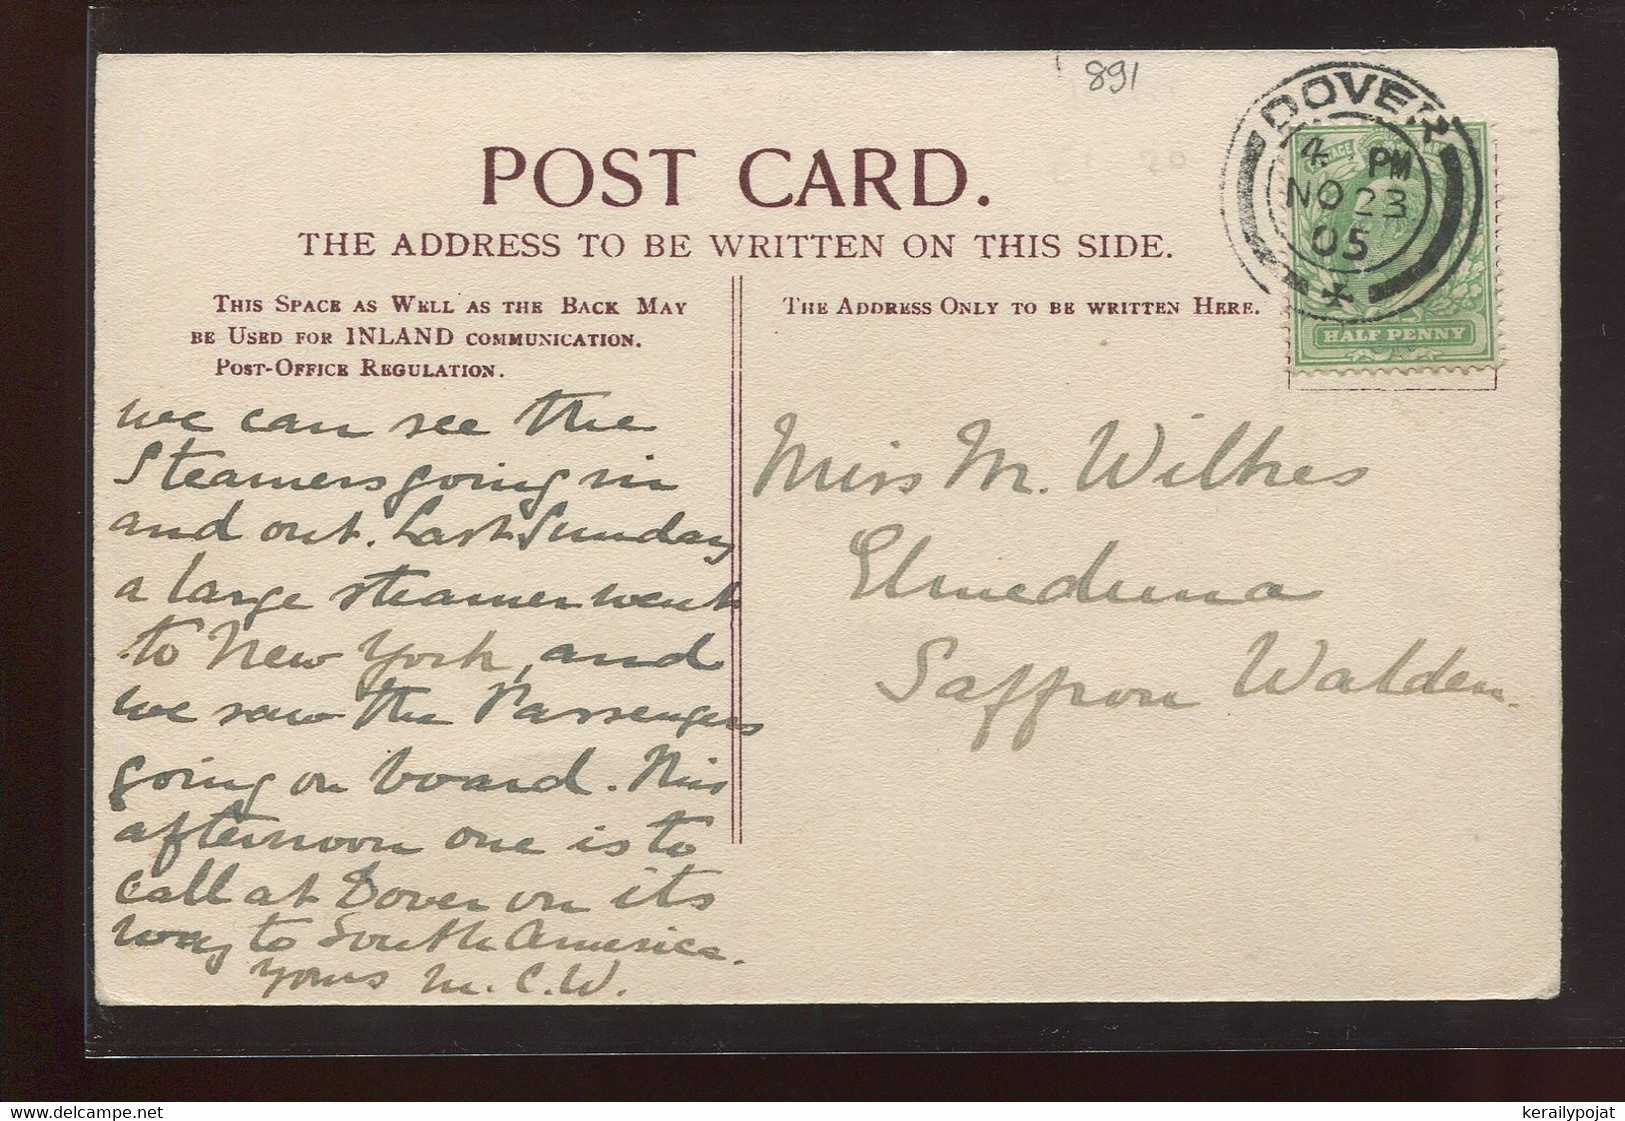 891
DOVER
4 PM
NO 23
05
HALF PENNY
POST CARD.
THE ADDRESS TO BE WRITTEN ON THIS SIDE.
THIS SPACE AS WELL AS THE BACK MAY
BE USED FOR INLAND COMMUNICATION.
POST-OFFICE REGULATION.
THE ADDRESS ONLY TO BE WRITTEN HERE.
we can see the
Steamers going in
and out. Last Sunday
a large steamer went
to New York, and
we saw the Passengers
going on board. This
afternoon one is to
call at Dover on its
way to South America.
yours M. C. W.
Miss M. Wilkes
Elmeduna
Saffron Walden.
the-stamps.com
kerailypojat